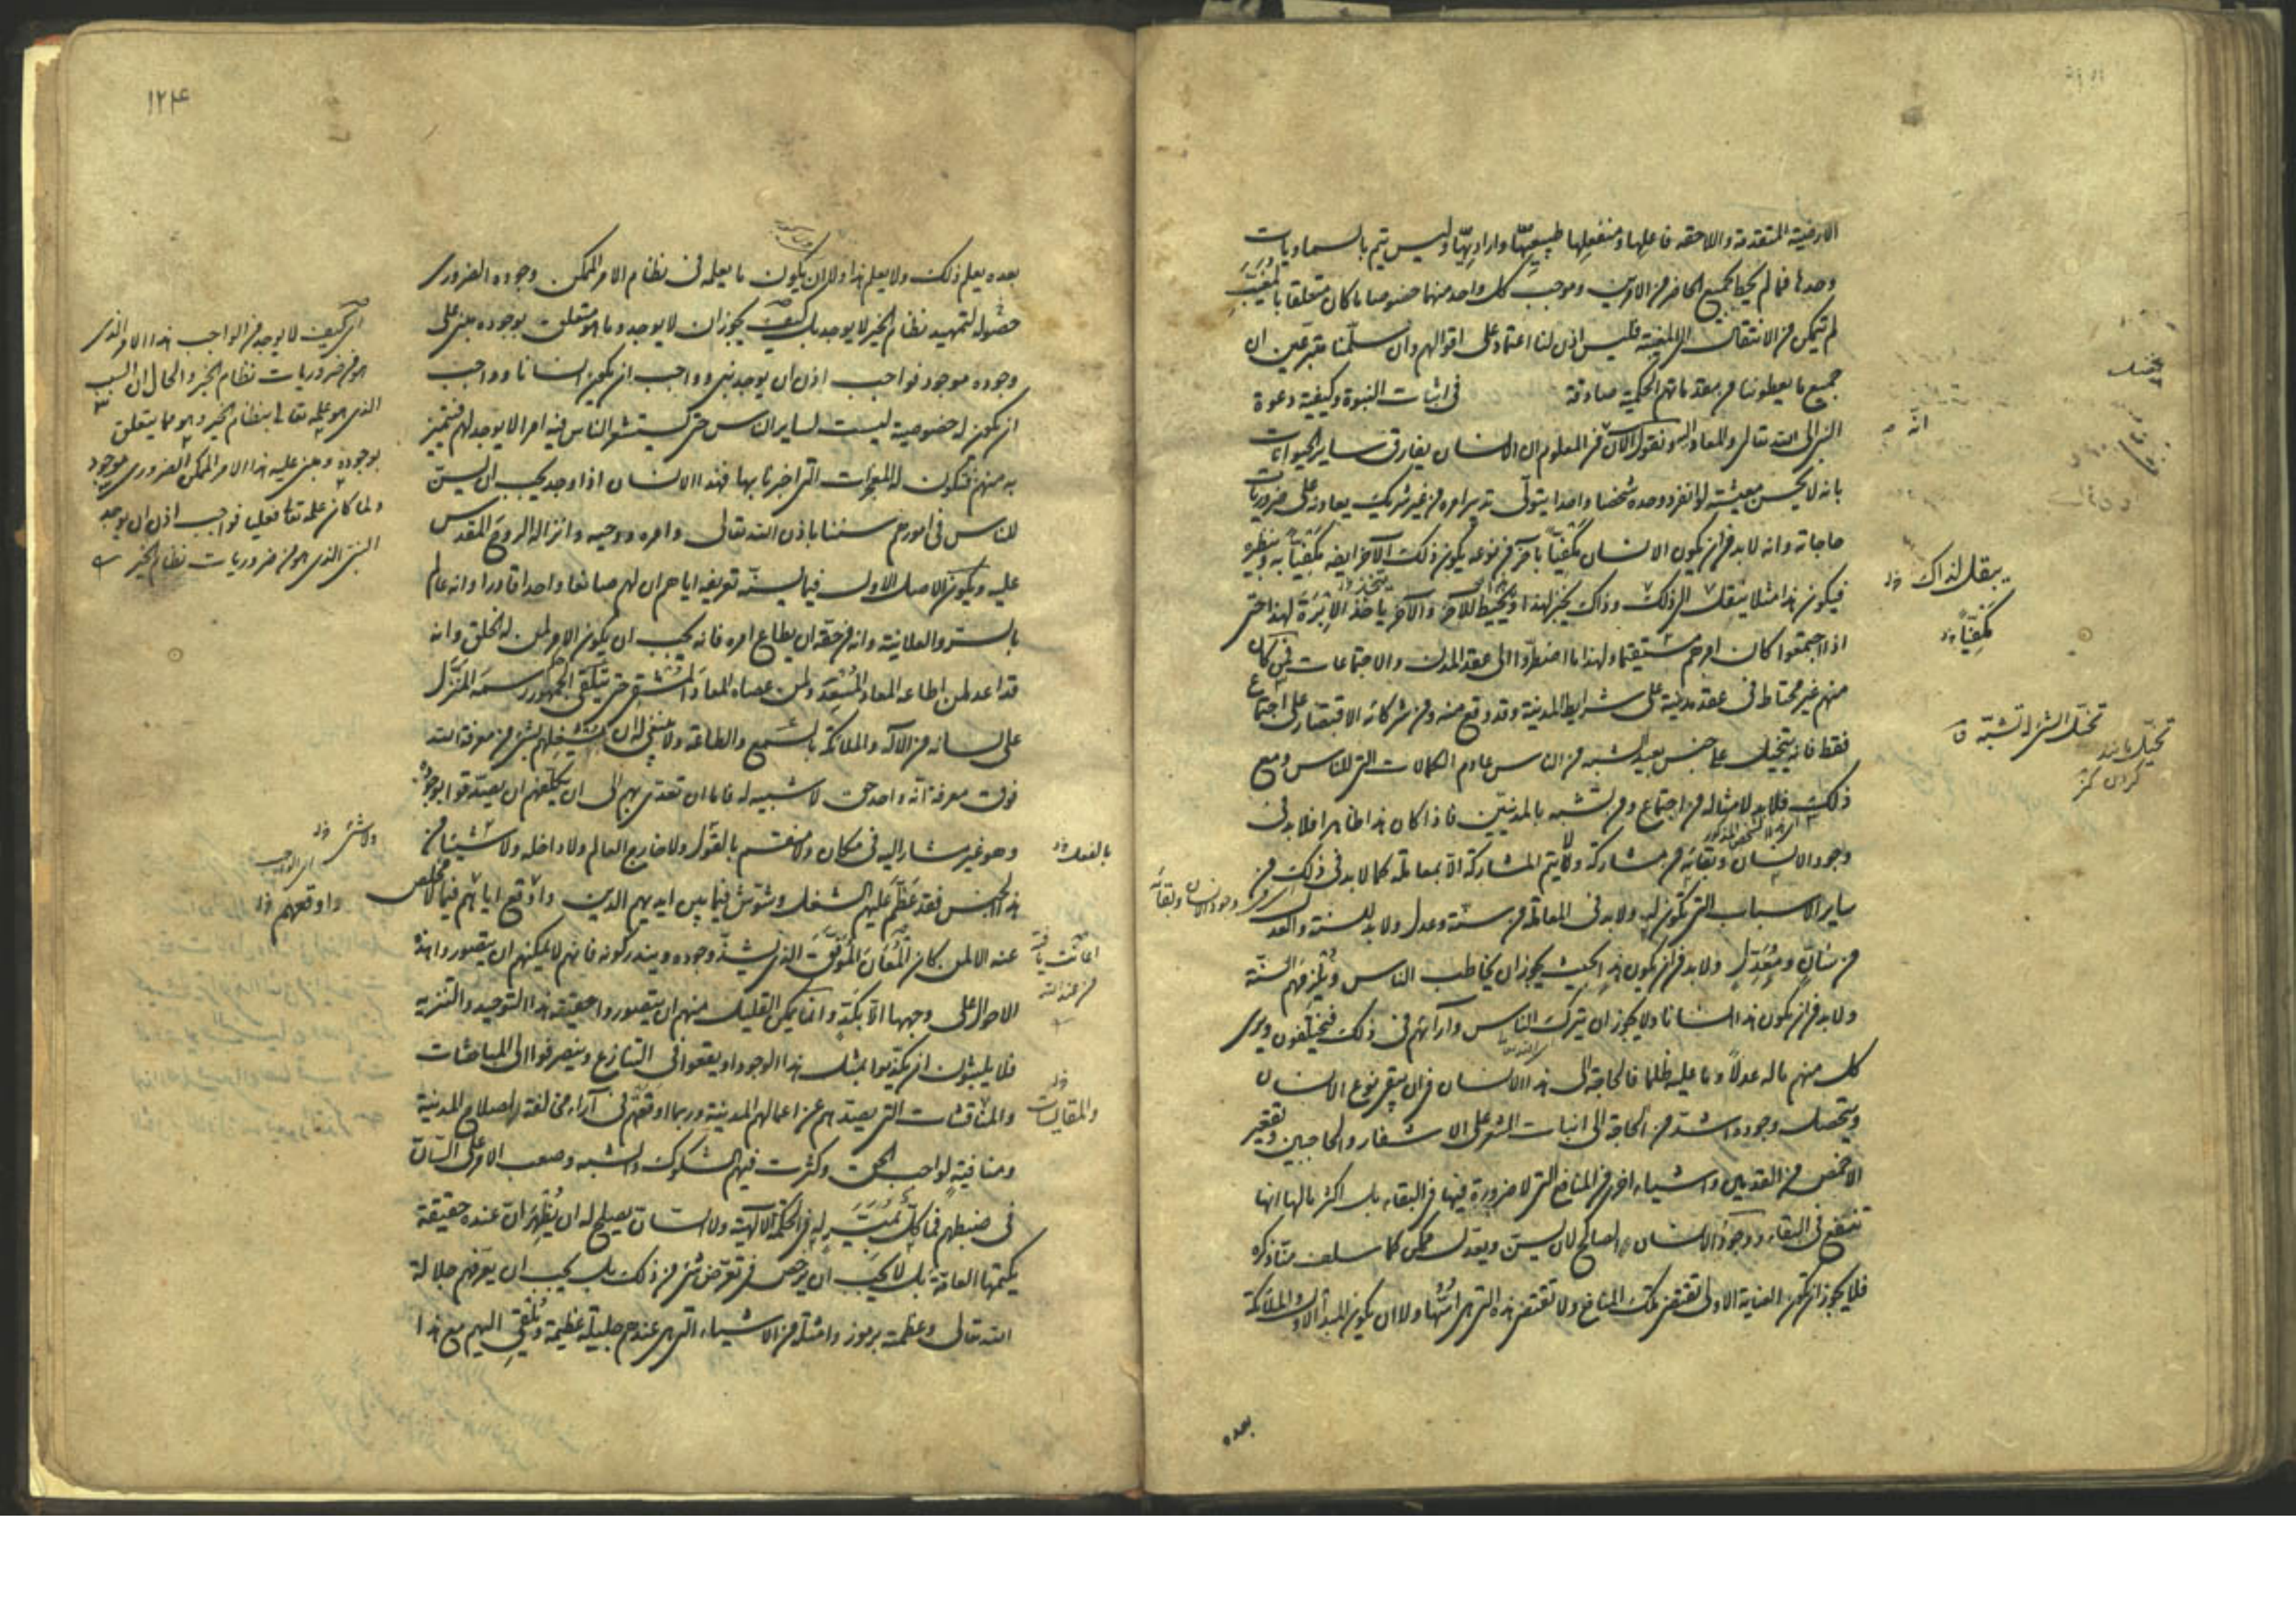 الارضية المتقدمة واللاحقة فاعلها ومنفعلها طبيعيها واراديها وليس يتم بالسماويات
وحدها فما لم يحط بجميع الحاضر من الامرين وموجب كل واحد منهما خصوصا ما كان متعلقا بالمغيب
لم يتمكن من الانتقال الى المغيب فليس اذن لنا اعتماد على اقوالهم وان سلمنا متبرعين ان
جميع ما يعطوننا من مقدماتهم الحكمية صادقة في اثبات النبوة وكيفية دعوة
النبي الى الله تعالى والمعاد اليه ونقول الآن من المعلوم ان الانسان يفارق ساير الحيوانات
بانه لا يحسن معيشته لو انفرد وحده شخصا واحدا يتولى تدبير امره من غير شريك يعاونه على ضروريات
حاجاته وانه لا بد من ان يكون الانسان مكفيا بآخر من نوعه يكون ذلك الآخر ايضا مكفيا به وبنظيره
فيكون هذا مثلا ينقل الى ذلك وذاك يخبز لهذا وهذا يخيط للآخر والآخر يتخذ الابرة لهذا حتى
اذا اجتمعوا كان امرهم مستقيما ولهذا ما اضطروا الى عقد المدن والاجتماعات فمن كان
منهم غير محتاط في عقد مدينته على شرايط المدينة وقد وقع منه ومن شركائه الاقتصار على اجتماع
فقط فانه يتحيل على جنس بعيد الشبه من الناس عادم الكمالات التي للناس ومع
ذلك فلا بد لامثاله من اجتماع ومن تشبه بالمدنيين فاذا كان هذا ظاهرا فلا بد في
وجود الانسان وبقائه من مشاركة ولا يتم المشاركة الا بمعاملة كما لا بد في ذلك من
ساير الاسباب التي تكون له ولا بد في المعاملة من سنة وعدل ولا بد للسنة والعدل
من سان ومعدل ولا بد من ان يكون هذا بحيث يجوز ان يخاطب الناس ويلزمهم السنة
ولا بد من ان يكون هذا انسانا ولا يجوز ان يترك الناس وآراءهم في ذلك فيختلفون ويرى
كل منهم ما له عدلا وما عليه ظلما فالحاجة الى هذا الانسان في ان يبقى نوع الانسان
ويتحصل وجوده اشد من الحاجة الى انبات الشعر على الاشفار والحاجبين وتقعير
الاخمص من القدمين واشياء اخرى من المنافع التي لا ضرورة فيها في البقاء بل اكثر ما لها انها
تنفع في البقاء ووجود الانسان الصالح لان يسن ويعدل ممكن كما سلف منا ذكره
فلا يجوز ان تكون العناية الاولى تقتضي تلك المنافع ولا تقتضي هذه التي هي اسها ولا ان يكون المبدأ الاول والملائكة
بعده
انه
ينقل لذاك
مكفيا
وجود الانسان وبقائه
١٢٤
بعده يعلم ذلك ولا يعلم هذا ولا ان يكون ما يعلمه في نظام الامر الممكن وجوده الضروري
حصوله لتمهيد نظام الخير لا يوجد بل كيف يجوز ان لا يوجد وما هو متعلق بوجوده مبني على
وجوده موجود فواجب اذن ان يوجد نبي وواجب ان يكون انسانا وواجب
ان يكون له خصوصية ليست لساير الناس حتى يستشعر الناس فيه امرا لا يوجد لهم فيتميز
به منهم فتكون له المعجزات التي اخبرنا بها فهذا الانسان اذا وجد يجب ان يسن
للناس في امورهم سننا باذن الله تعالى وامره ووحيه وانزاله الروح المقدس
عليه ويكون الاصل الاول فيما يسنه تعريفه اياهم ان لهم صانعا واحدا قادرا وانه عالم
بالسر والعلانية وانه من حقه ان يطاع امره فانه يجب ان يكون الامر لمن له الخلق وانه
قد اعد لمن اطاعه المعاد المسعد ولمن عصاه المعاد المشقى حتى يتلقى الجمهور رسمه المنزل
على لسانه من الاله والملائكة بالسمع والطاعة ولا ينبغي له ان يشغلهم بشيء من معرفة الله
فوق معرفة انه واحد حق لا شبيه له فاما ان تعدى بهم الى ان يكلفهم ان يصدقوا بوجوده
وهو غير مشار اليه في مكان ولا منقسم بالقول ولا خارج العالم ولا داخله ولا شيئا من
هذا الجنس فقد عظم عليهم الشغل وشوش فيما بين ايديهم الدين واوقع اياهم فيما لا مخلص
عنه الا لمن كان المعان الموفق الذي يشذ وجوده ويندر كونه فانهم لا يمكنهم ان يتصوروا هذه
الاحوال على وجهها الا بكد وانما يمكن القليل منهم ان يتصوروا حقيقة هذا التوحيد والتنزيه
فلا يلبثون ان يكذبوا بمثل هذا الوجود او يقعوا في التنازع وينصرفوا الى المباحثات
والمناقشات التي يصدهم عن اعمالهم المدنية وربما اوقعهم في آراء مخالفة لصلاح المدينة
ومنافية لواجب الحق وكثرت فيهم الشكوك والشبه وصعب الامر على السان
في ضبطهم فما كل بميسر له في الحكمة الالهية ولا السان يصلح له ان يظهر ان عنده حقيقة
يكتمها العامة بل لا يجب ان يرخص في تعرض شيء من ذلك بل يجب ان يعرفهم جلالة
الله تعالى وعظمته برموز وامثلة من الاشياء التي هي عندهم جليلة عظيمة ويلقي اليهم مع هذا
اي كيف لا يوجد من الواجب هذا الامر الذي
هو من ضروريات نظام الخير والحال ان السبب
الذي هو علمه تعالى بنظام الخير وهو مما يتعلق
بوجوده ومبني عليه هذا الامر الممكن الضروري موجود
ولما كان علمه تعالى فعليا فواجب اذن ان يوجد
النبي الذي هو من ضروريات نظام الخير
ولا شيء
واوقعهم
بالفعل
من عند الله
والمقايسات